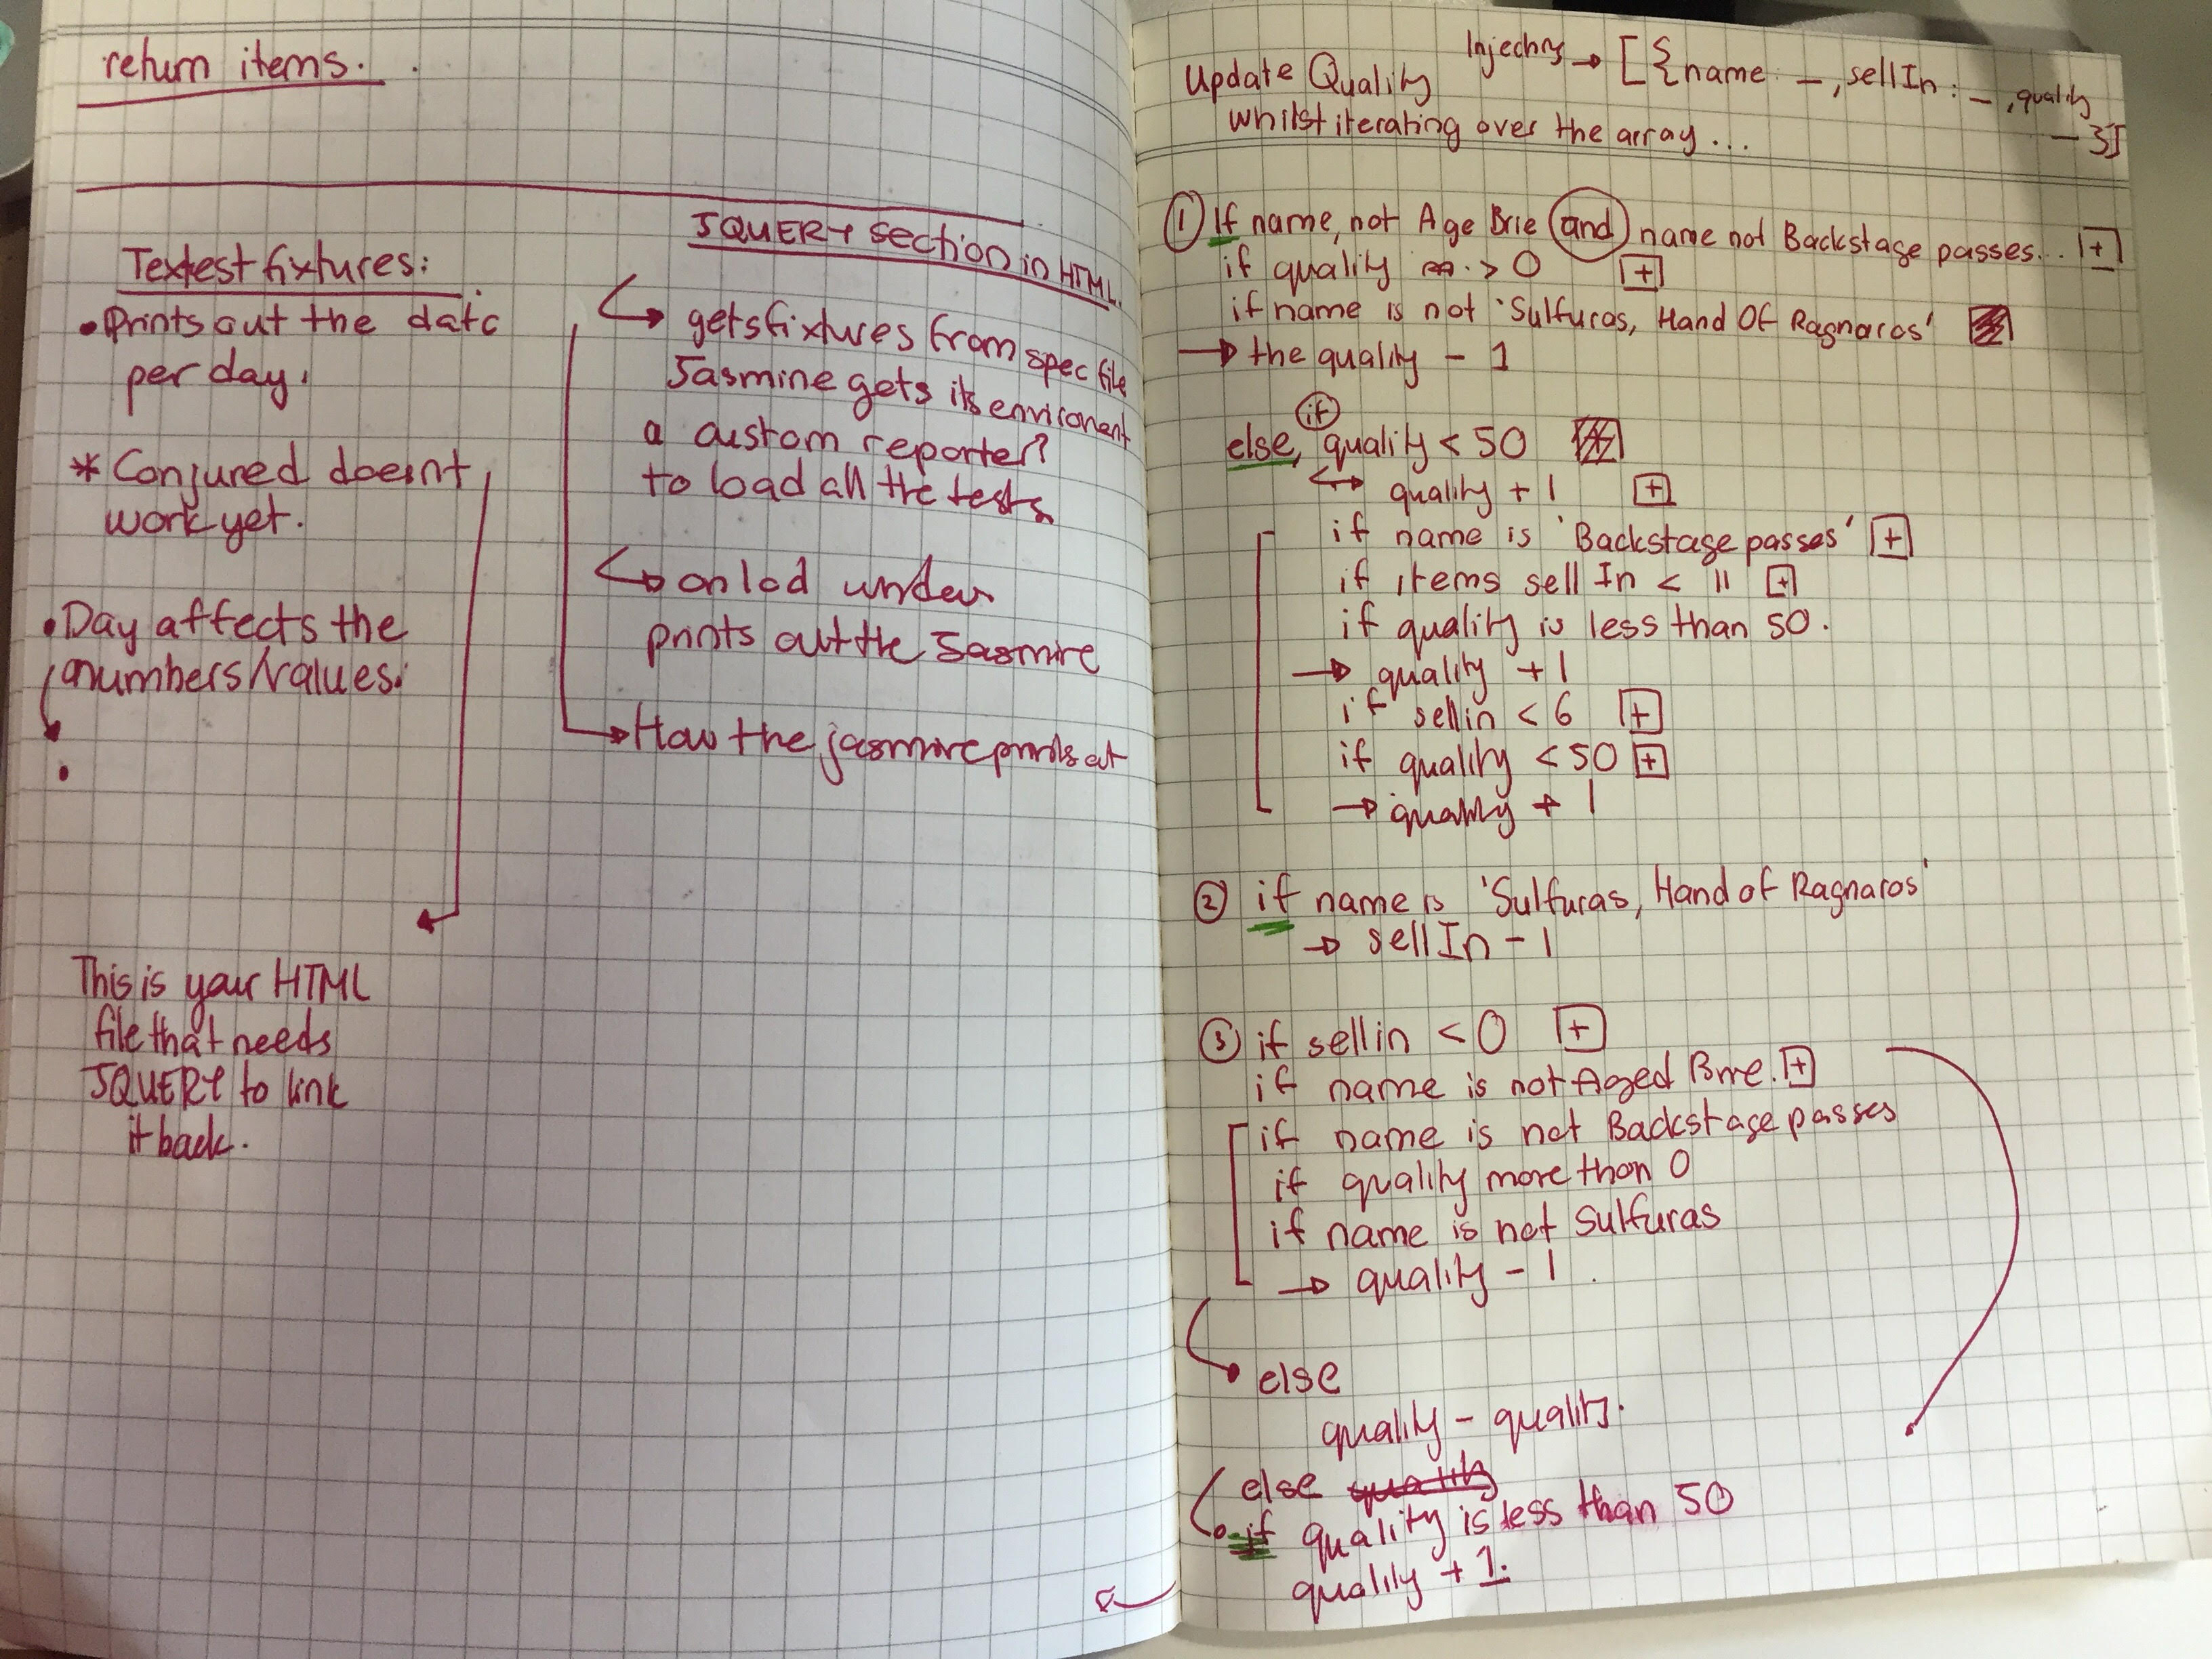 return items.
Textest fixtures:
• Prints out the data
per day.
* Conjured doesnt
work yet.
• Day affects the
numbers/values.
This is your HTML
file that needs
JQUERY to link
it back.
JQUERY section in HTML.
gets fixtures from spec file
Jasmine gets its enviroment
a custom reporter?
to load all the tests
onlod under
prints out the Jasmine
How the jasmine prints out
Update Quality
Injecting → [{name: _, sellIn: _, quality
_}]
whilst iterating over the array...
① If name, not Age Brie and name not Backstage passes... [+]
if quality > 0 [+]
if name is not 'Sulfuras, Hand Of Ragnaros'
→ the quality - 1
if
else, quality < 50
↪ quality + 1 [+]
if name is 'Backstage passes' [+]
if items sell In < 11 [+]
if quality is less than 50.
→ quality + 1
if sellin < 6 [+]
if quality < 50 [+]
→ quality + 1
② if name is 'Sulfuras, Hand of Ragnaros'
→ sell In - 1
③ if sellin < 0 [+]
if name is not Aged Brie. [+]
if name is not Backstage passes
if quality more than 0
if name is not Sulfuras
→ quality - 1.
else
quality - quality.
else quality
if quality is less than 50
quality + 1.